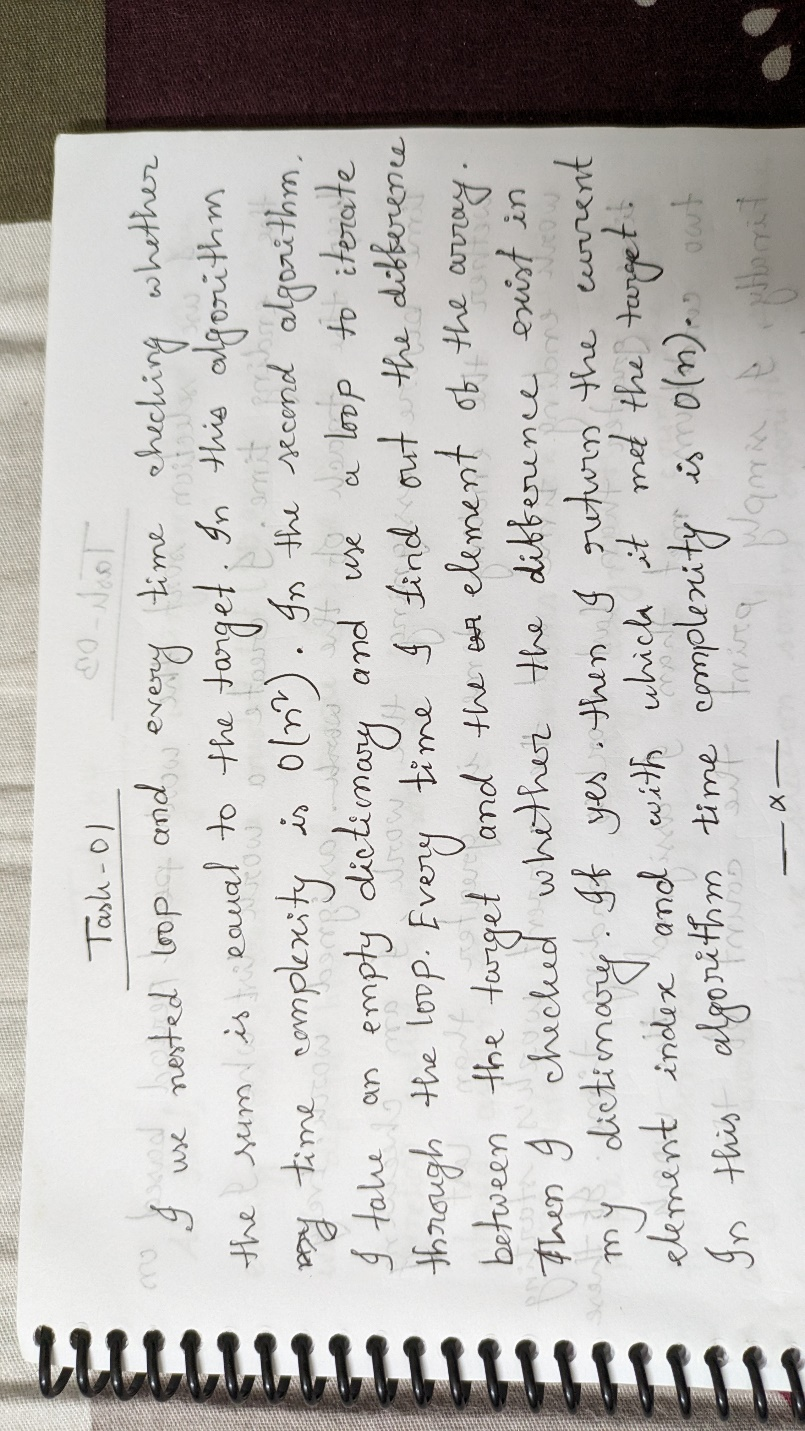 Task-01
I use nested loop and every time checking whether
the sum is equal to the target. In this algorithm
my time complexity is O(n²). In the second algorithm.
I take an empty dictionary and use a loop to iterate
through the loop. Every time I find out the difference
between the target and the element of the array.
Then I checked whether the difference exist in
my dictionary. If yes. then I return the current
element index and with which it met the target.
In this algorithm time complexity is O(n).
—x—